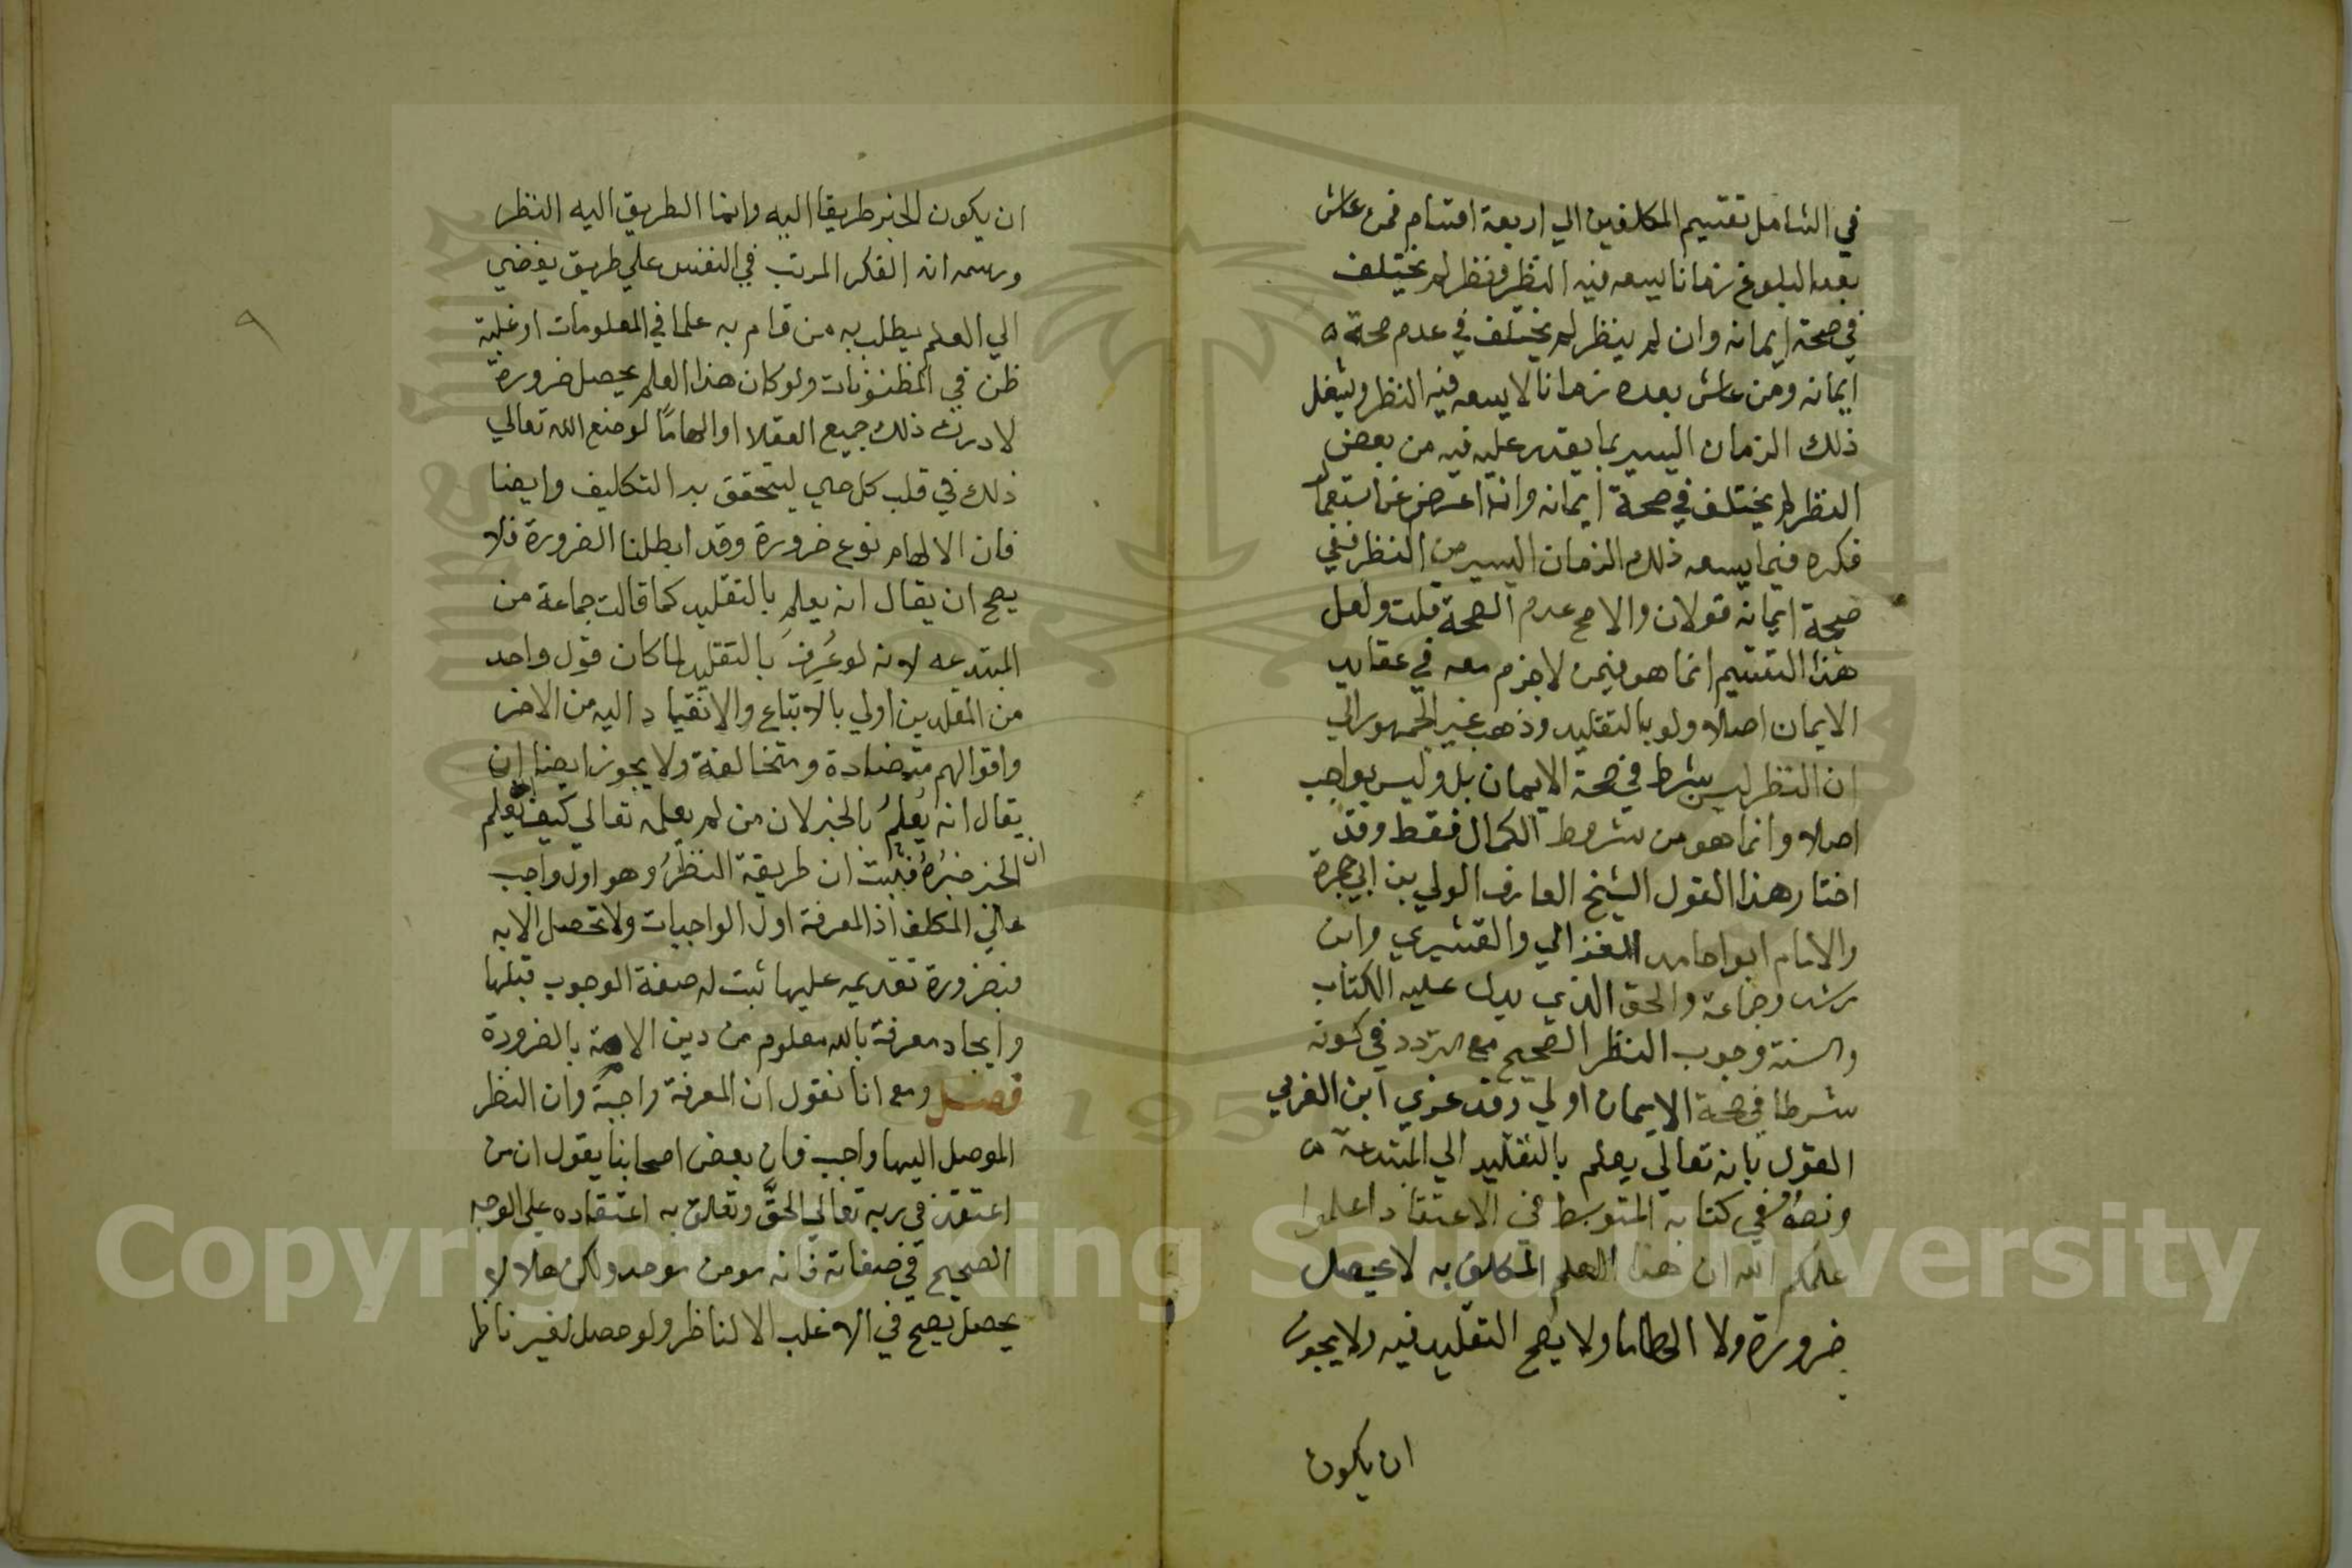 في الشامل تقسيم المكلفين الي اربعة اقسام فمن عاش
بعد البلوغ زمانا يسعه فيه النظر ونظر لم يختلف
في صحة ايمانه وان لم ينظر لم يختلف في عدم صحة
ايمانه ومن عاش بعده زمانا لا يسعه فيه النظر وشغل
ذلك الزمان اليسير بما يقدر عليه فيه من بعض
النظر لم يختلف في صحة ايمانه وان اعرض عن استعمال
فكره فيما يسعه ذلك الزمان اليسير من النظر ففي
صحة ايمانه قولان والاصح عدم الصحة قلت ولعل
هذا التقسيم انما هو فيمن لا جزم معه في عقايد
الايمان اصلا ولو بالتقليد وذهب غير الجمهور الي
ان النظر ليس بشرط في صحة الايمان بل وليس بواجب
اصلا وانما هو من شروط الكمال فقط وقد
اختار هذا القول الشيخ العارف الولي بن ابي جمرة
والامام ابوا حامد الغزالي والقشيري وابن
رشد وجماعة والحق الذي يدل عليه الكتاب
والسنة وجوب النظر الصحيح مع التردد في كونه
شرطا في صحة الايمان اولي وقد عزي ابن العربي
القول بانه تعالي يعلم بالتقليد الي المبتدعة
ونصه في كتابه المتوسط في الاعتقاد اعلموا
علمكم الله ان هذا العلم المكلف به لا يحصل
ضرورة ولا الهاما ولا يصح التقليد فيه ولا يجوز
ان يكون
٩
ان يكون الخبر طريقا اليه وانما الطريق اليه النظر
ورسمه انه الفكر المرتب في النفس علي طريق يفضي
الي العلم يطلب به من قام به علما في المعلومات او غلبة
ظن في المظنونات ولو كان هذا العلم يحصل ضرورة
لادرك ذلك جميع العقلا او الهامًا لوضع الله تعالي
ذلك في قلب كل حي ليتحقق به التكليف وايضا
فان الالهام نوع ضرورة وقد ابطلنا الضرورة فلا
يصح ان يقال انه يعلم بالتقليد كما قالت جماعة من
المبتدعه لانه لو عُرف بالتقليد لما كان قول واحد
من المقلدين اولي بالاتباع والانقياد اليه من الاخر
واقوالهم متضادة ومتخالفة ولا يجوز ايضا ان
يقال انه يُعلم بالخبر لان من لم يعلمه تعالي كيف يعلم
ان الخبر خبرُه فثبت ان طريقة النظرُ وهو اول واجب
علي المكلف اذ المعرفة اول الواجبات ولا تحصل الا به
فبضرورة تقديمه عليها ثبت له صفة الوجوب قبلها
وايجاد معرفة بالله معلوم من دين الامة بالضرورة
فصل ومع انا نقول ان المعرفة واجبة وان النظر
الموصل اليها واجب فان بعض اصحابنا يقول ان من
اعتقد في ربه تعالي الحقَّ وتعلق به اعتقاده علي الوجه
الصحيح في صفاته فانه مومن موحد ولكن هذا لا
يحصل يصح في الاغلب الا لناظر ولو حصل لغير ناظر